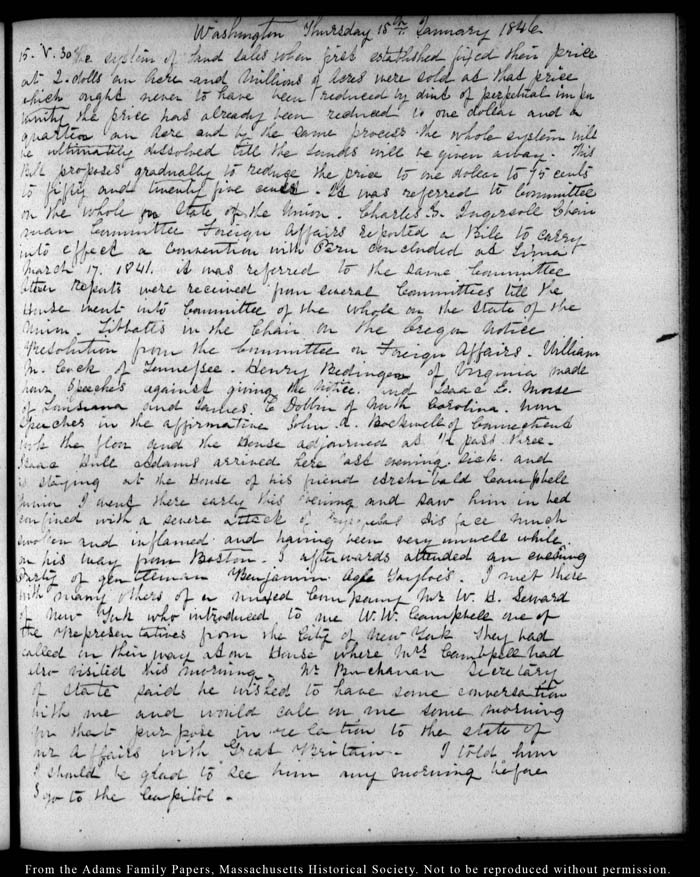 Washington Thursday 15th January 1846
15. V. 30 The system of Land sales when first established fixed their price
at 2. dolls an Acre and Millions of Acres were sold at that price
which ought never to have been reduced by dint of perpetual
the price has already been reduced to one dollar and a
quarter an Acre and by the same process the whole system will
be ultimately dissolved till the Lands will be given away. This
Bill proposes gradually to reduce the price to one dollar to 75 cents
to fifty and twenty five cents. It was referred to Committee
on the Whole on State of the Union. Charles J. Ingersoll Chair
man Committee Foreign Affairs reported a Bill to carry
into effect a Convention with Peru concluded at Lima
March 17. 1841. it was referred to the same Committee
other Reports were received from several Committees till the
House went into Committee of the whole on the state of the
Union. Tibbatts in the Chair on the Oregon Notice
Resolution from the Committee on Foreign Affairs. William
M. Cock of Tennessee. Henry Bedinger of Virginia made
hour Speeches against giving the Notice. and Isaac E. Morse
of Louisiana and James. C Dobbin of North Carolina. hour
Speeches in the affirmative John A. Rockwell of Connecticut
took the floor and the House adjourned at 1/2 past three.
Isaac Hull Adams arrived here last evening sick and
is staying at the House of his friend Archibald Campbell
Junior I went there early this Evening and saw him in bed
confined with a severe attack of Erysipelas his face much
swollen and inflamed and having been very unwell while
on his way from Boston. I afterwards attended an evening
party of gentleman Benjamin Ogle Tayloe's. I met there
with many others of a mixed Company Mr W. H. Seward
of New York who introduced to me W. W. Campbell one of
the Representatives from the City of New York They had
called in their way at our House where Mrs Campbell had
also visited this morning. Mr Buchanan Secretary
of State said he wished to have some conversation
with me and would call on me some morning
for that purpose in relation to the state of
our affairs with Great Britain. I told him
I should be glad to see him any morning before
I go to the Capitol.
From the Adams Family Papers, Massachusetts Historical Society. Not to be reproduced without permission.